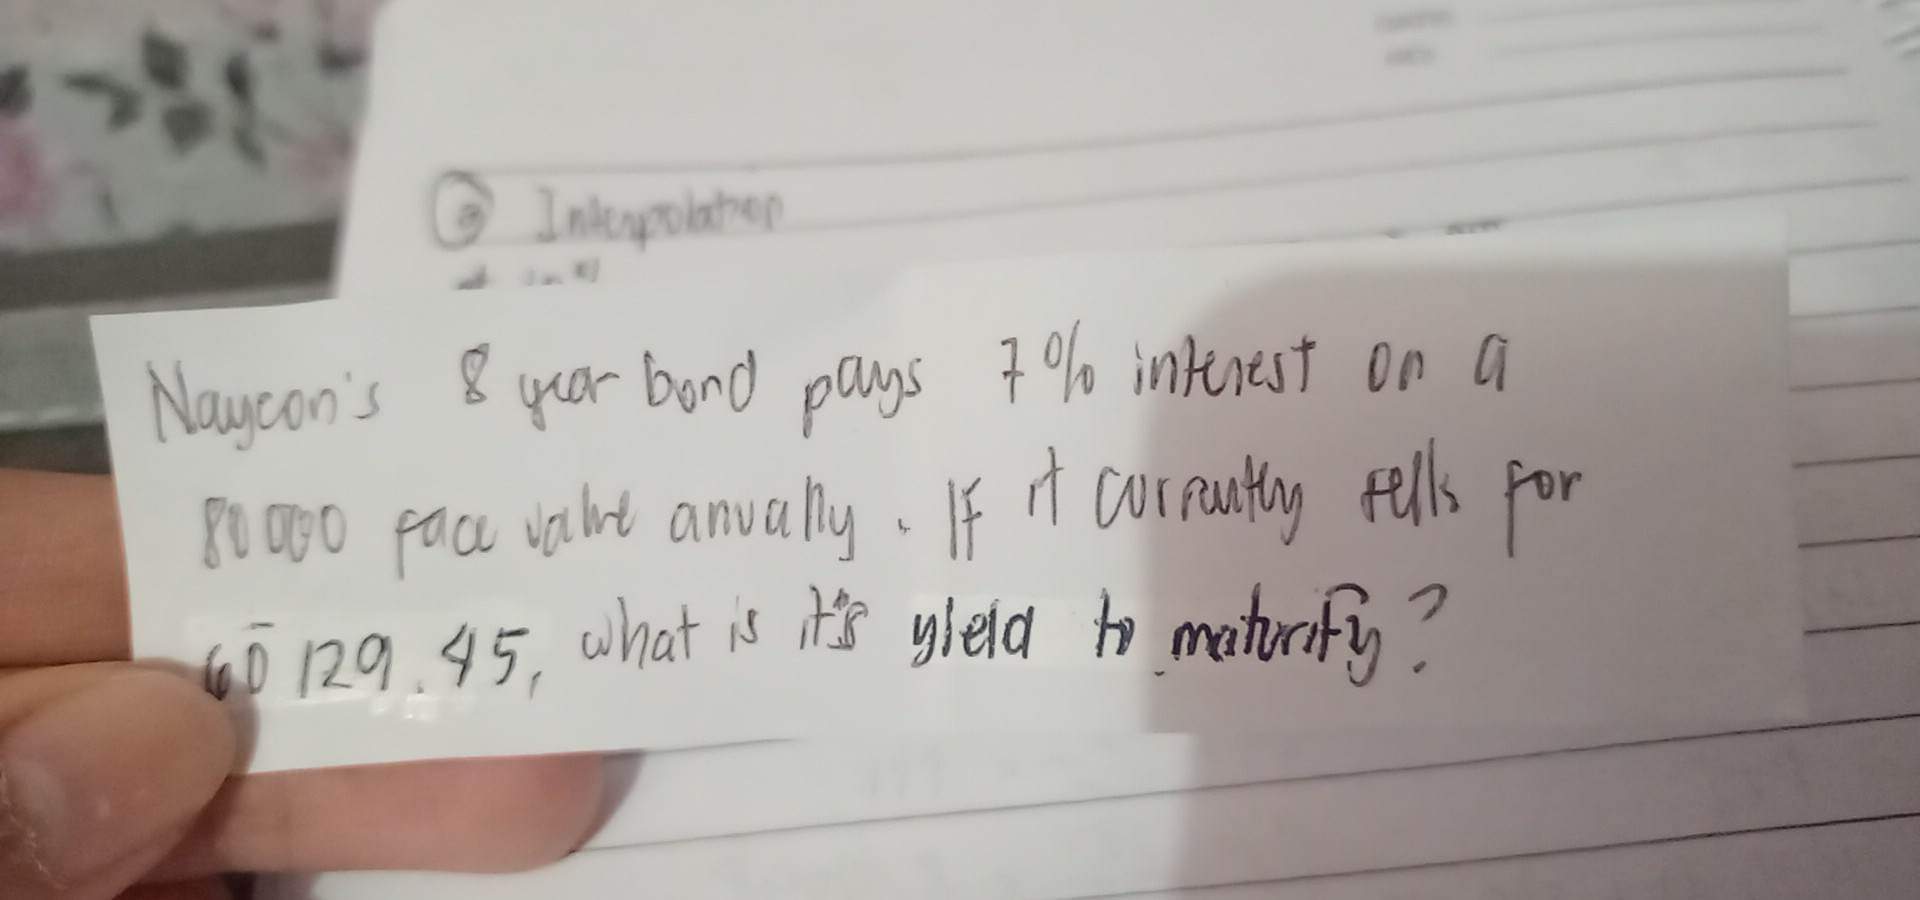 ② Interpolation
Naycon's 8 year bond pays 7% interest on a
80 000 face value anually. If it currently sells for
60 129.45, what is it's yield to maturity?